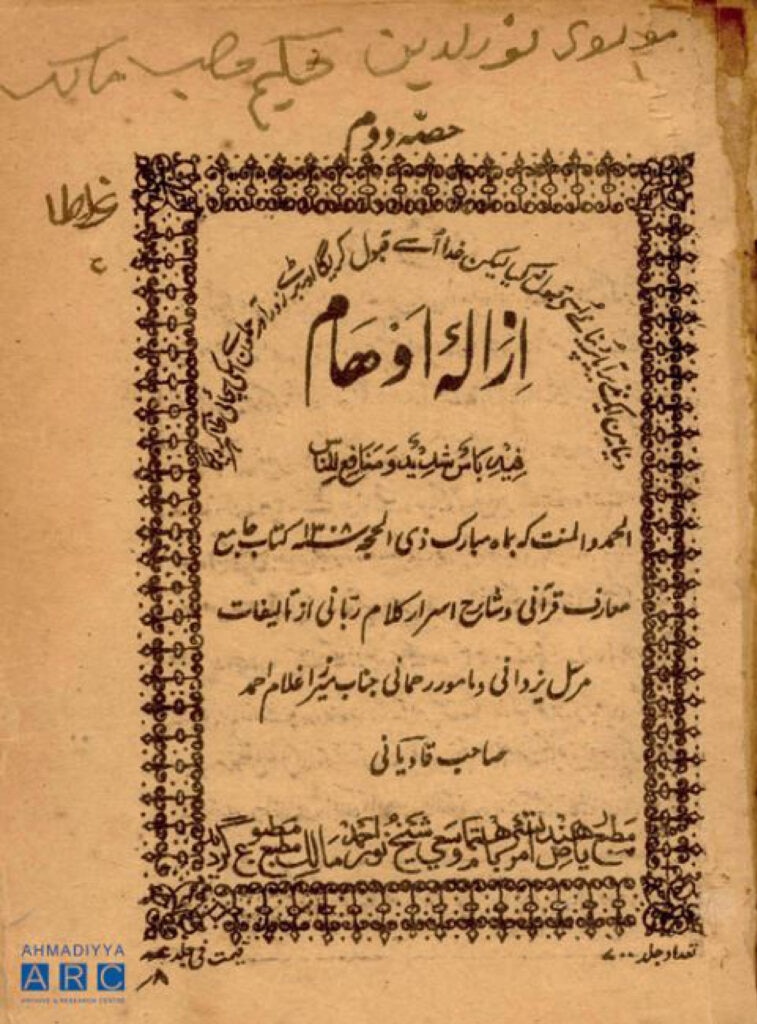 مولوی نورلدین حکیم صاحب مالک
حصہ دوم
دنیا میں ایک نذیر آیا پر دنیا نے اسکو قبول نہ کیا لیکن خدا اسے قبول کریگا اور بڑے زور آور حملوں سے اسکی سچائی ظاہر کر دیگا
ازالۂ اوھام
فیہ باس شدید و منافع للناس
الحمد والمنت کہ بماہ مبارک ذی الحجہ ۱۳۰۸ھ کتاب جامع
معارف قرآنی و شارح اسرار کلام ربانی از تالیفات
مرسل یزدانی و مامور رحمانی جناب میرزا غلام احمد
صاحب قادیانی
مطبع ریاض ھند امرتسر باھتمام شیخ نور احمد مالک مطبع مطبوع گردید
تعداد جلد ۷۰۰
قیمت فی جلد
AHMADIYYA
ARC
ARCHIVE & RESEARCH CENTRE